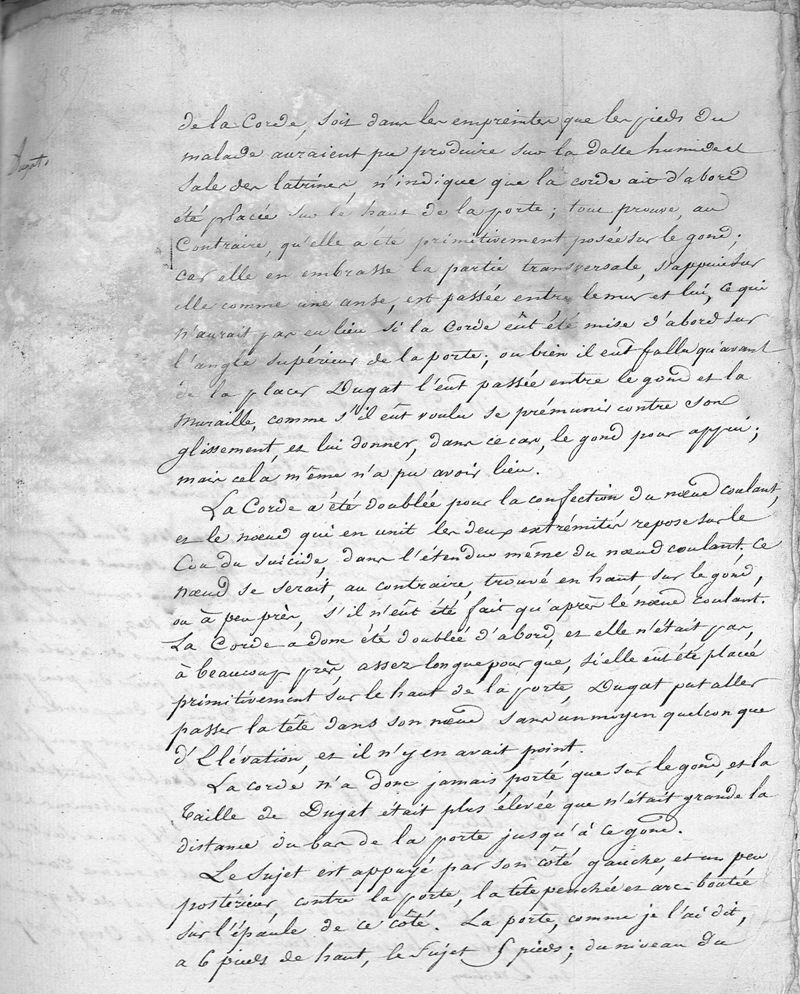 Dugat.
de la Corde, soit dans les empreintes que les pieds du
malade auraient pu produire sur la dalle humide et
Sale des latrines, n'indique que la corde ait d'abord
été placée sur le haut de la porte; tout prouve, au
Contraire, qu'elle a été primitivement posée sur le gond;
car elle en embrasse la partie transversale, s'appuie sur
elle comme une anse, est passée entre le mur et lui, ce qui
n'aurait pas eu lieu si la Corde eût été mise d'abord sur
l'angle supérieur de la porte; ou bien il eut fallu qu'avant
de la placer Dugat l'eut passée entre le gond et la
muraille, comme s'il eût voulu se prémunir contre son
glissement, et lui donner, dans ce cas, le gond pour appui;
mais cela même n'a pu avoir lieu.
La Corde a été doublée pour la confection du nœud coulant,
et le nœud qui en unit les deux extrémités repose sur le
Cou du suicidé, dans l'étendue même du nœud coulant. Ce
nœud se serait, au contraire, trouvé en haut sur le gond,
ou à peu près, s'il n'eût été fait qu'après le nœud coulant.
La Corde a donc été doublée d'abord, et elle n'était pas,
à beaucoup près, assez longue pour que, si elle eût été placée
primitivement sur le haut de la porte, Dugat put aller
passer la tête dans son nœud sans un moyen quelconque
d'Élévation, et il n'y en avait point.
La corde n'a donc jamais porté que sur le gond, et la
taille de Dugat était plus élevée que n'était grande la
distance du bas de la porte jusqu'à ce gond.
Le Sujet est appuyé par son côté gauche, et un peu
postérieur, contre la porte, la tête penchée et arc-boutée
sur l'épaule de ce côté. La porte, comme je l'ai dit,
a 6 pieds de haut, le Sujet 5 pieds; du niveau du